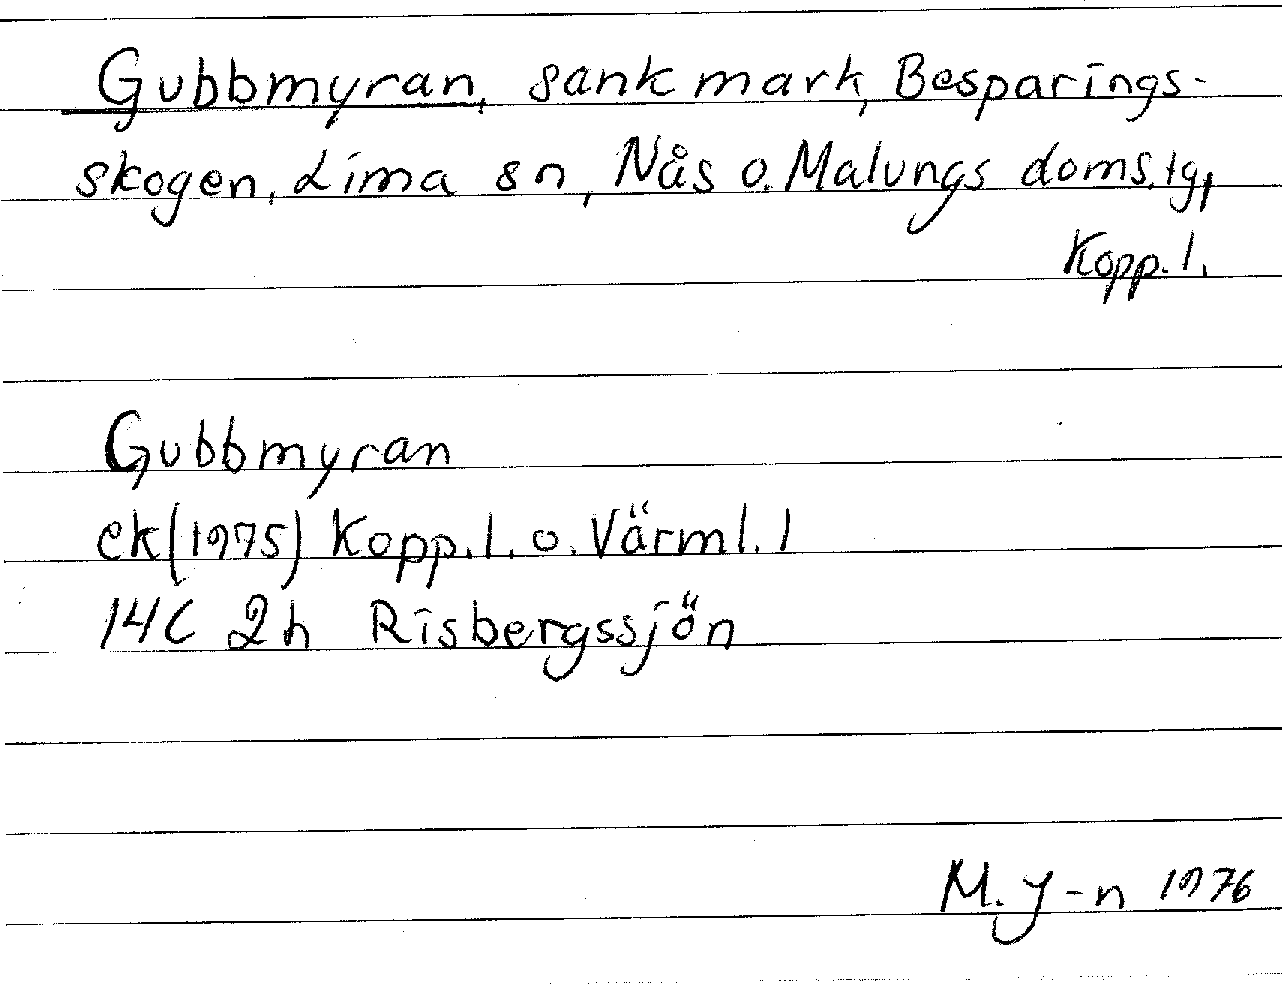 Gubbmyran, sank mark, Besparings-
skogen, Lima sn, Nås o. Malungs doms.tg,
Kopp. l.
Gubbmyran
ek(1975) Kopp. l. o. Värml. l
14C 2h Risbergssjön
M. J-n 1976